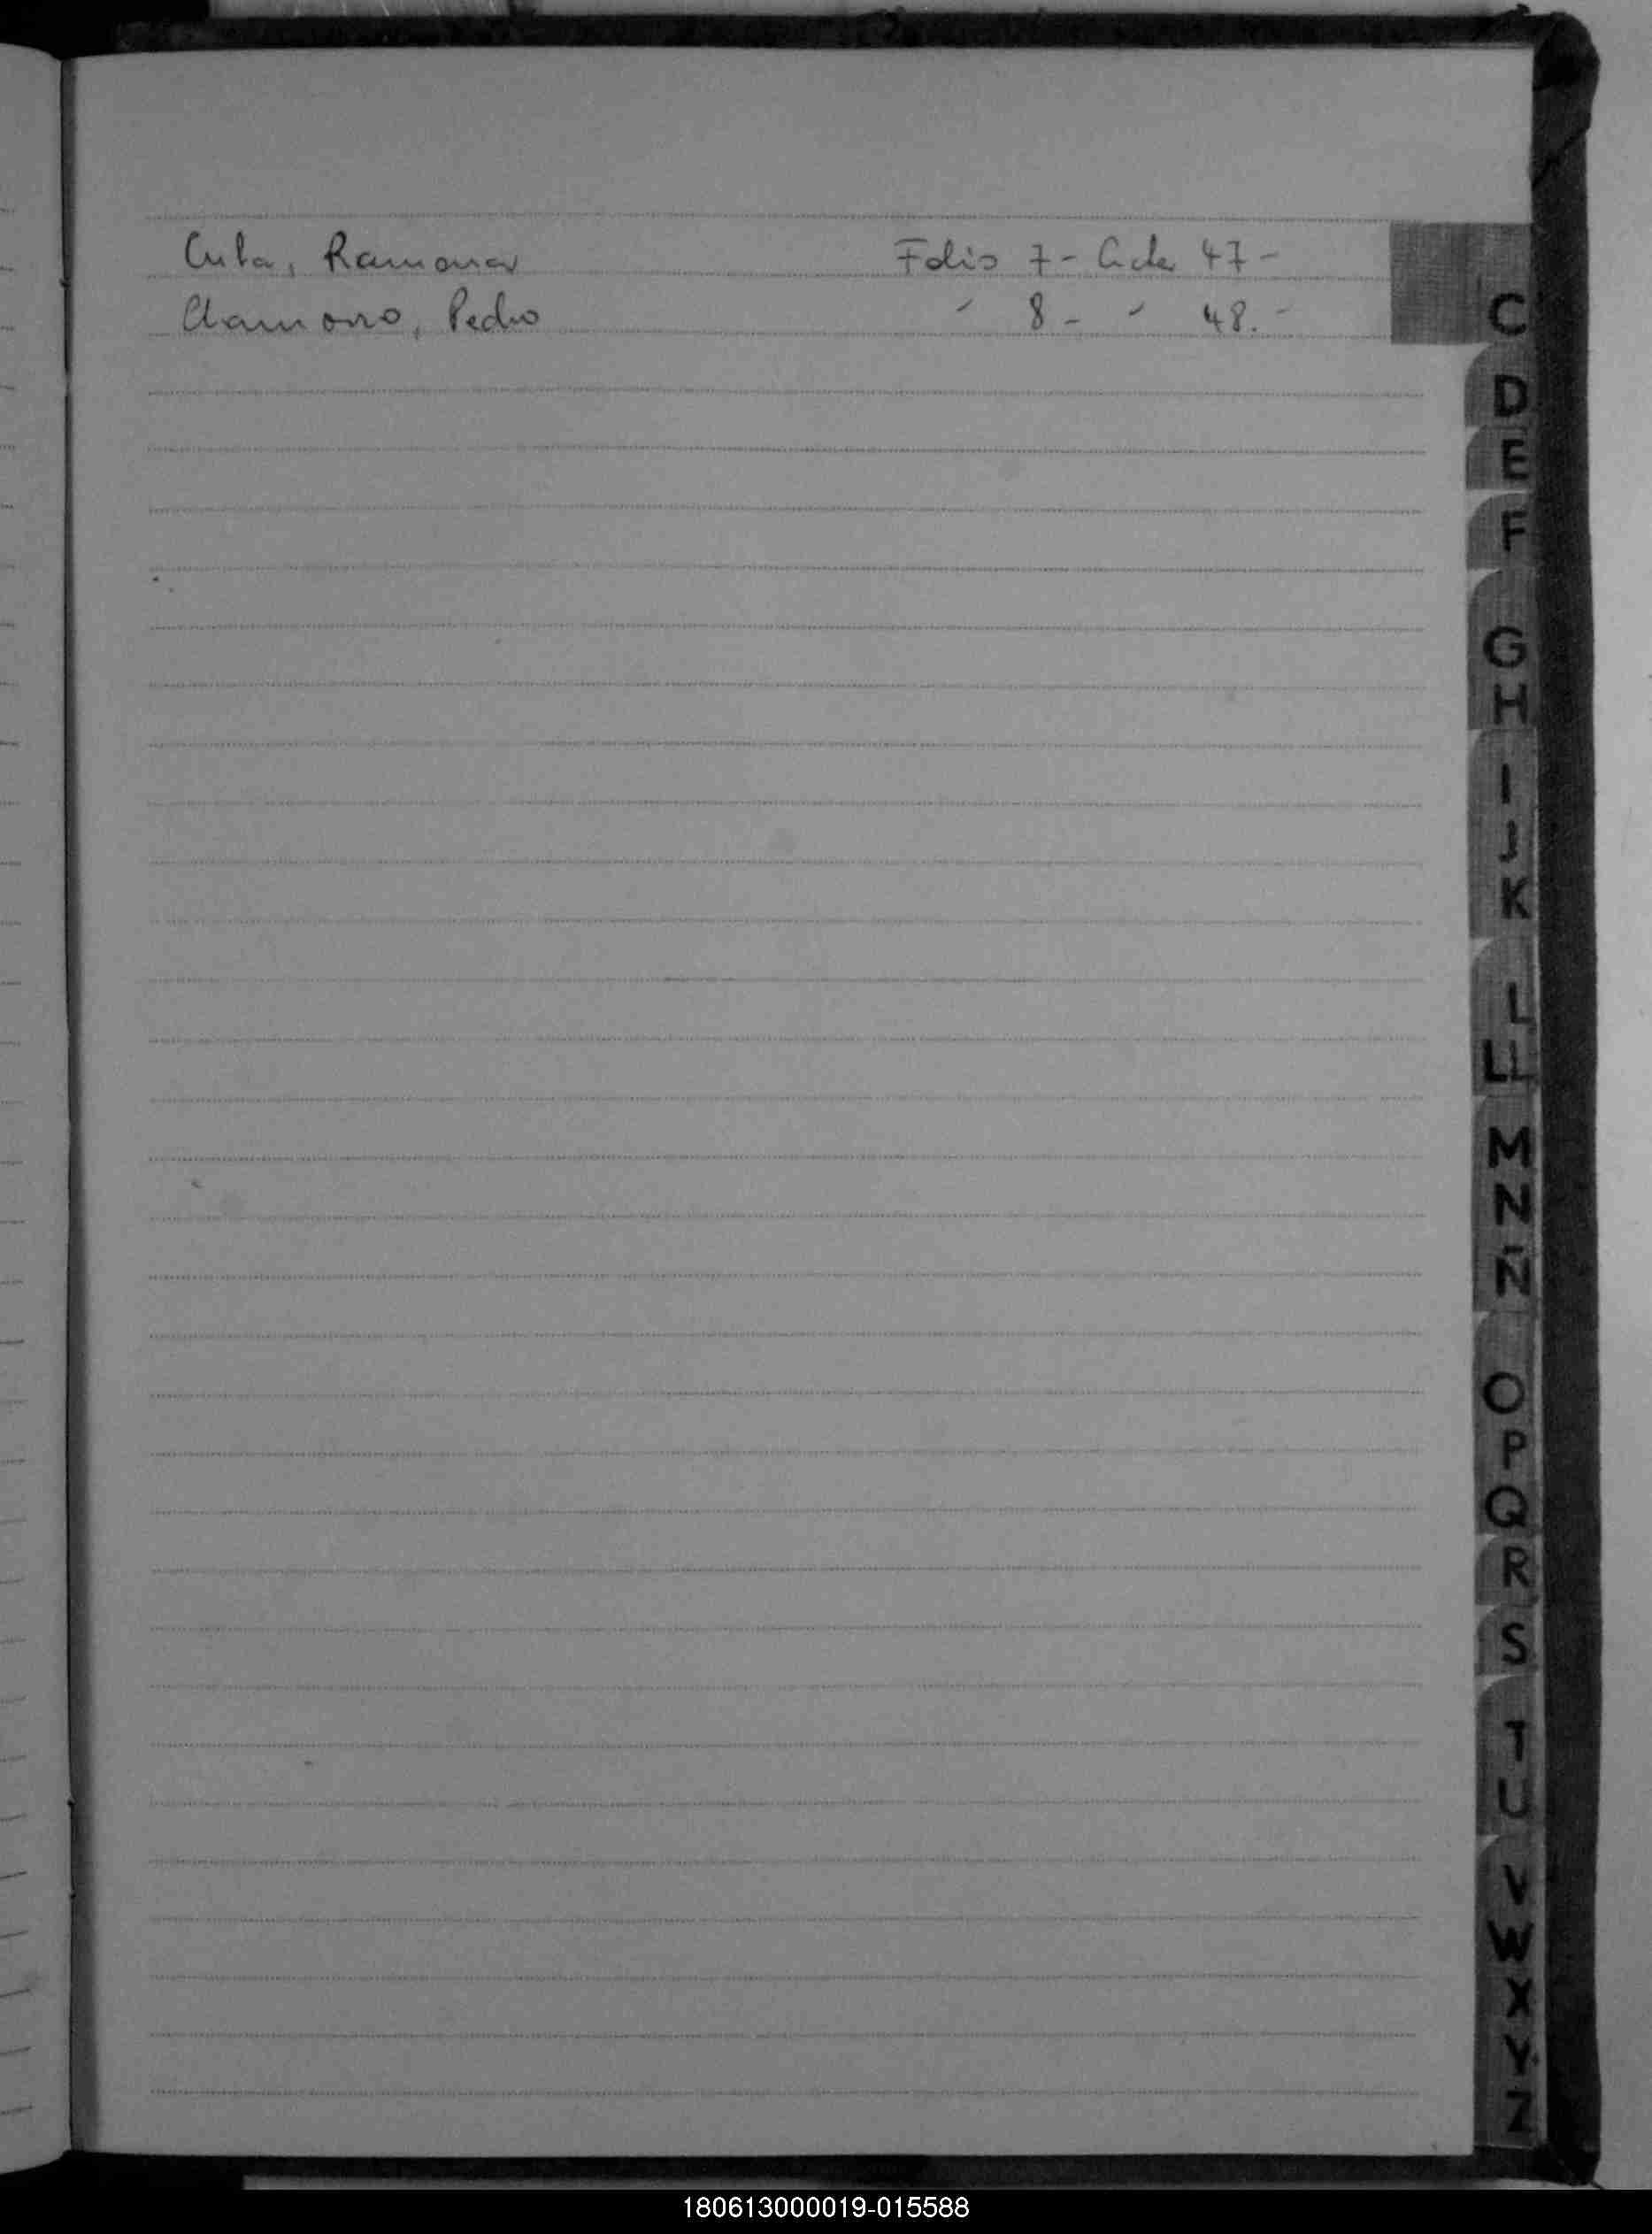 Cuba, Ramona Folio 7 - Acta 47 -
Chamorro, Pedro " 8 - " 48. -
C
D
E
F
G
H
I
J
K
L
LL
M
N
Ñ
O
P
Q
R
S
T
U
V
W
X
Y
Z
180613000019-015588